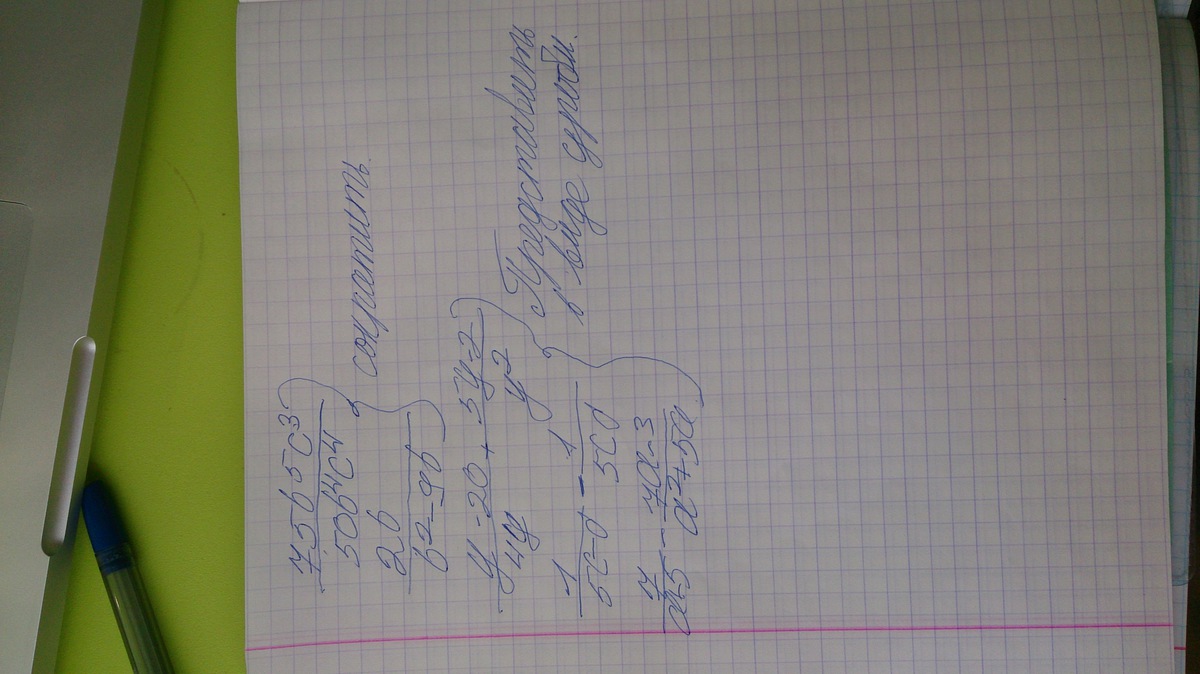 75b⁵c³
50b⁴c⁴
2b
b²-9b
сократить.
y-20 + 5y-2
4y y²
1 - 1
5c-d 5cd
7 - 7a-3
a-5 a²+5a
Представить
в виде дроби.